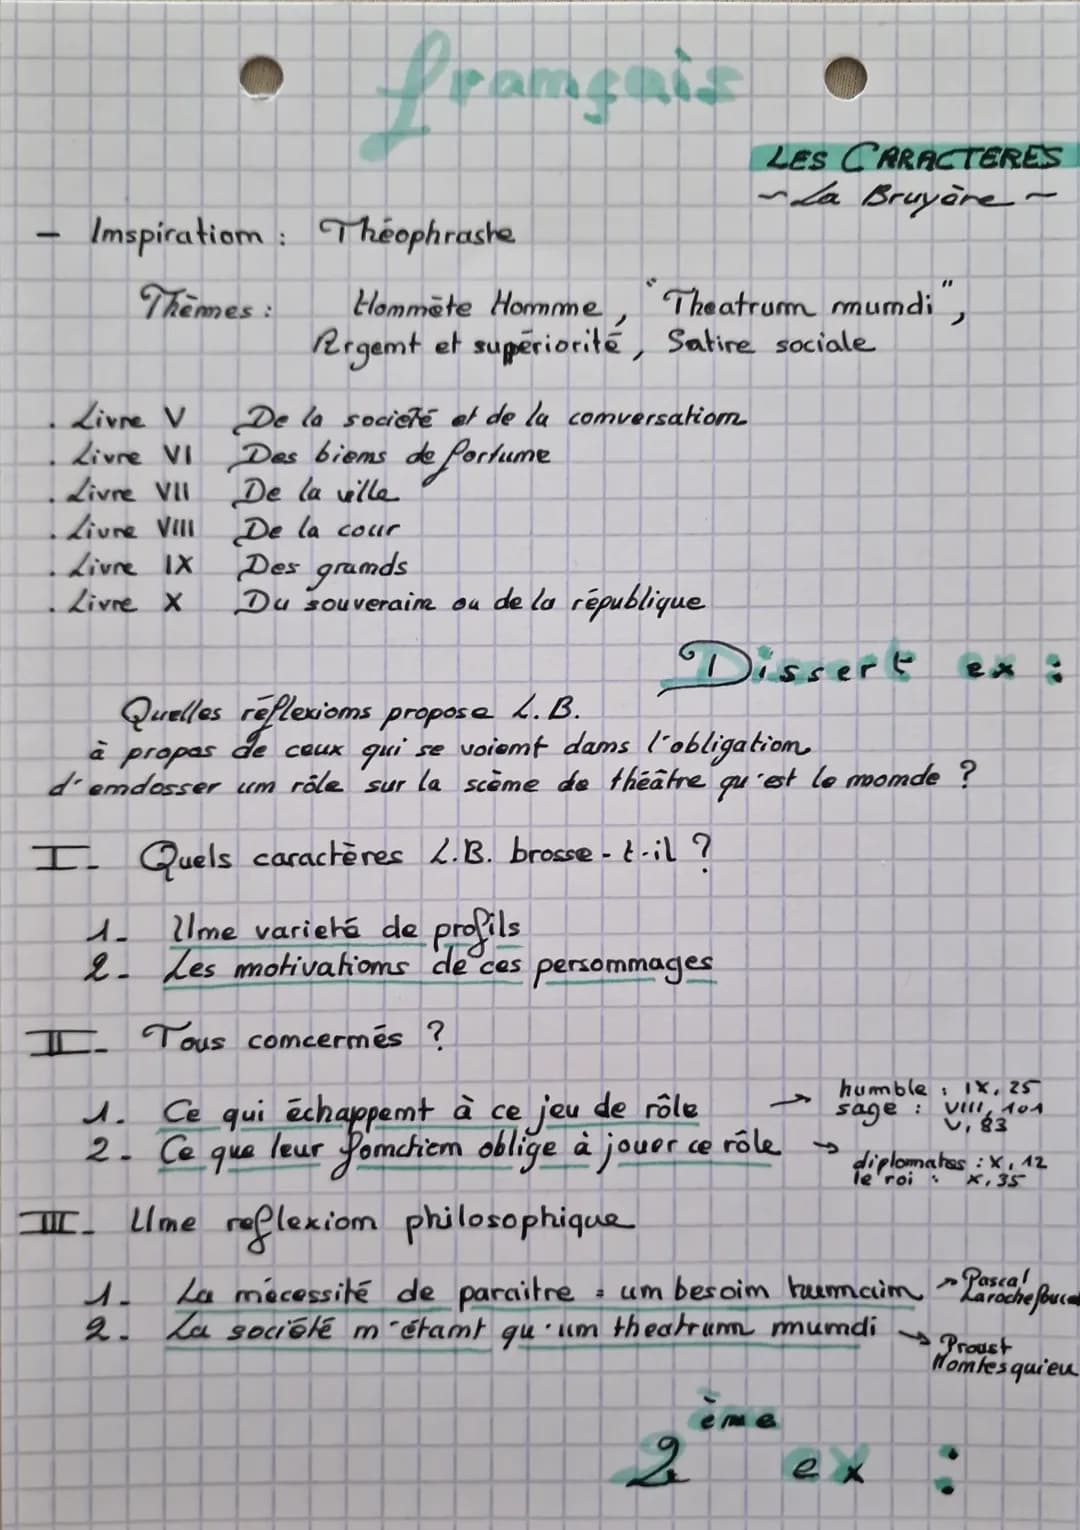 français
LES CARACTERES
~ La Bruyère ~
- Inspiration : Théophraste
Thèmes : Honnête Homme, "Theatrum mundi",
Argent et supériorité, Satire sociale
. Livre V De la société et de la conversation
. Livre VI Des biens de fortune
. Livre VII De la ville
. Livre VIII De la cour
. Livre IX Des grands
. Livre X Du souverain ou de la république
Dissert ex :
Quelles réflexions propose L.B.
à propos de ceux qui se voient dans l'obligation
d'endosser un rôle sur la scène de théâtre qu'est le monde ?
I- Quels caractères L.B. brosse-t-il ?
1- Une varieté de profils
2- Les motivations de ces personnages
II- Tous concernés ?
1. Ce qui échappent à ce jeu de rôle → humble : IX, 25
sage : VIII, 101
V, 83
2- Ce que leur fonction oblige à jouer ce rôle → diplomates : X, 12
le roi : X, 35
III- Une reflexion philosophique
1- La nécessité de paraitre = un besoin humain → Pascal
Larochefoucal
2- La société n'étant qu'un theatrum mundi → Proust
Montesquieu
2ème ex :